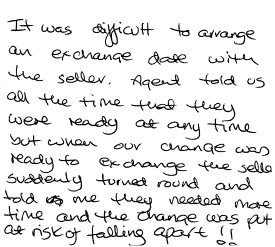 It was difficult to arrange
an exchange date with
the seller. Agent told us
all the time that they
were ready at any time
but when our change was
ready to exchange the selle
suddenly turned round and
told me they needed more
time and the change was put
at risk of falling apart !!